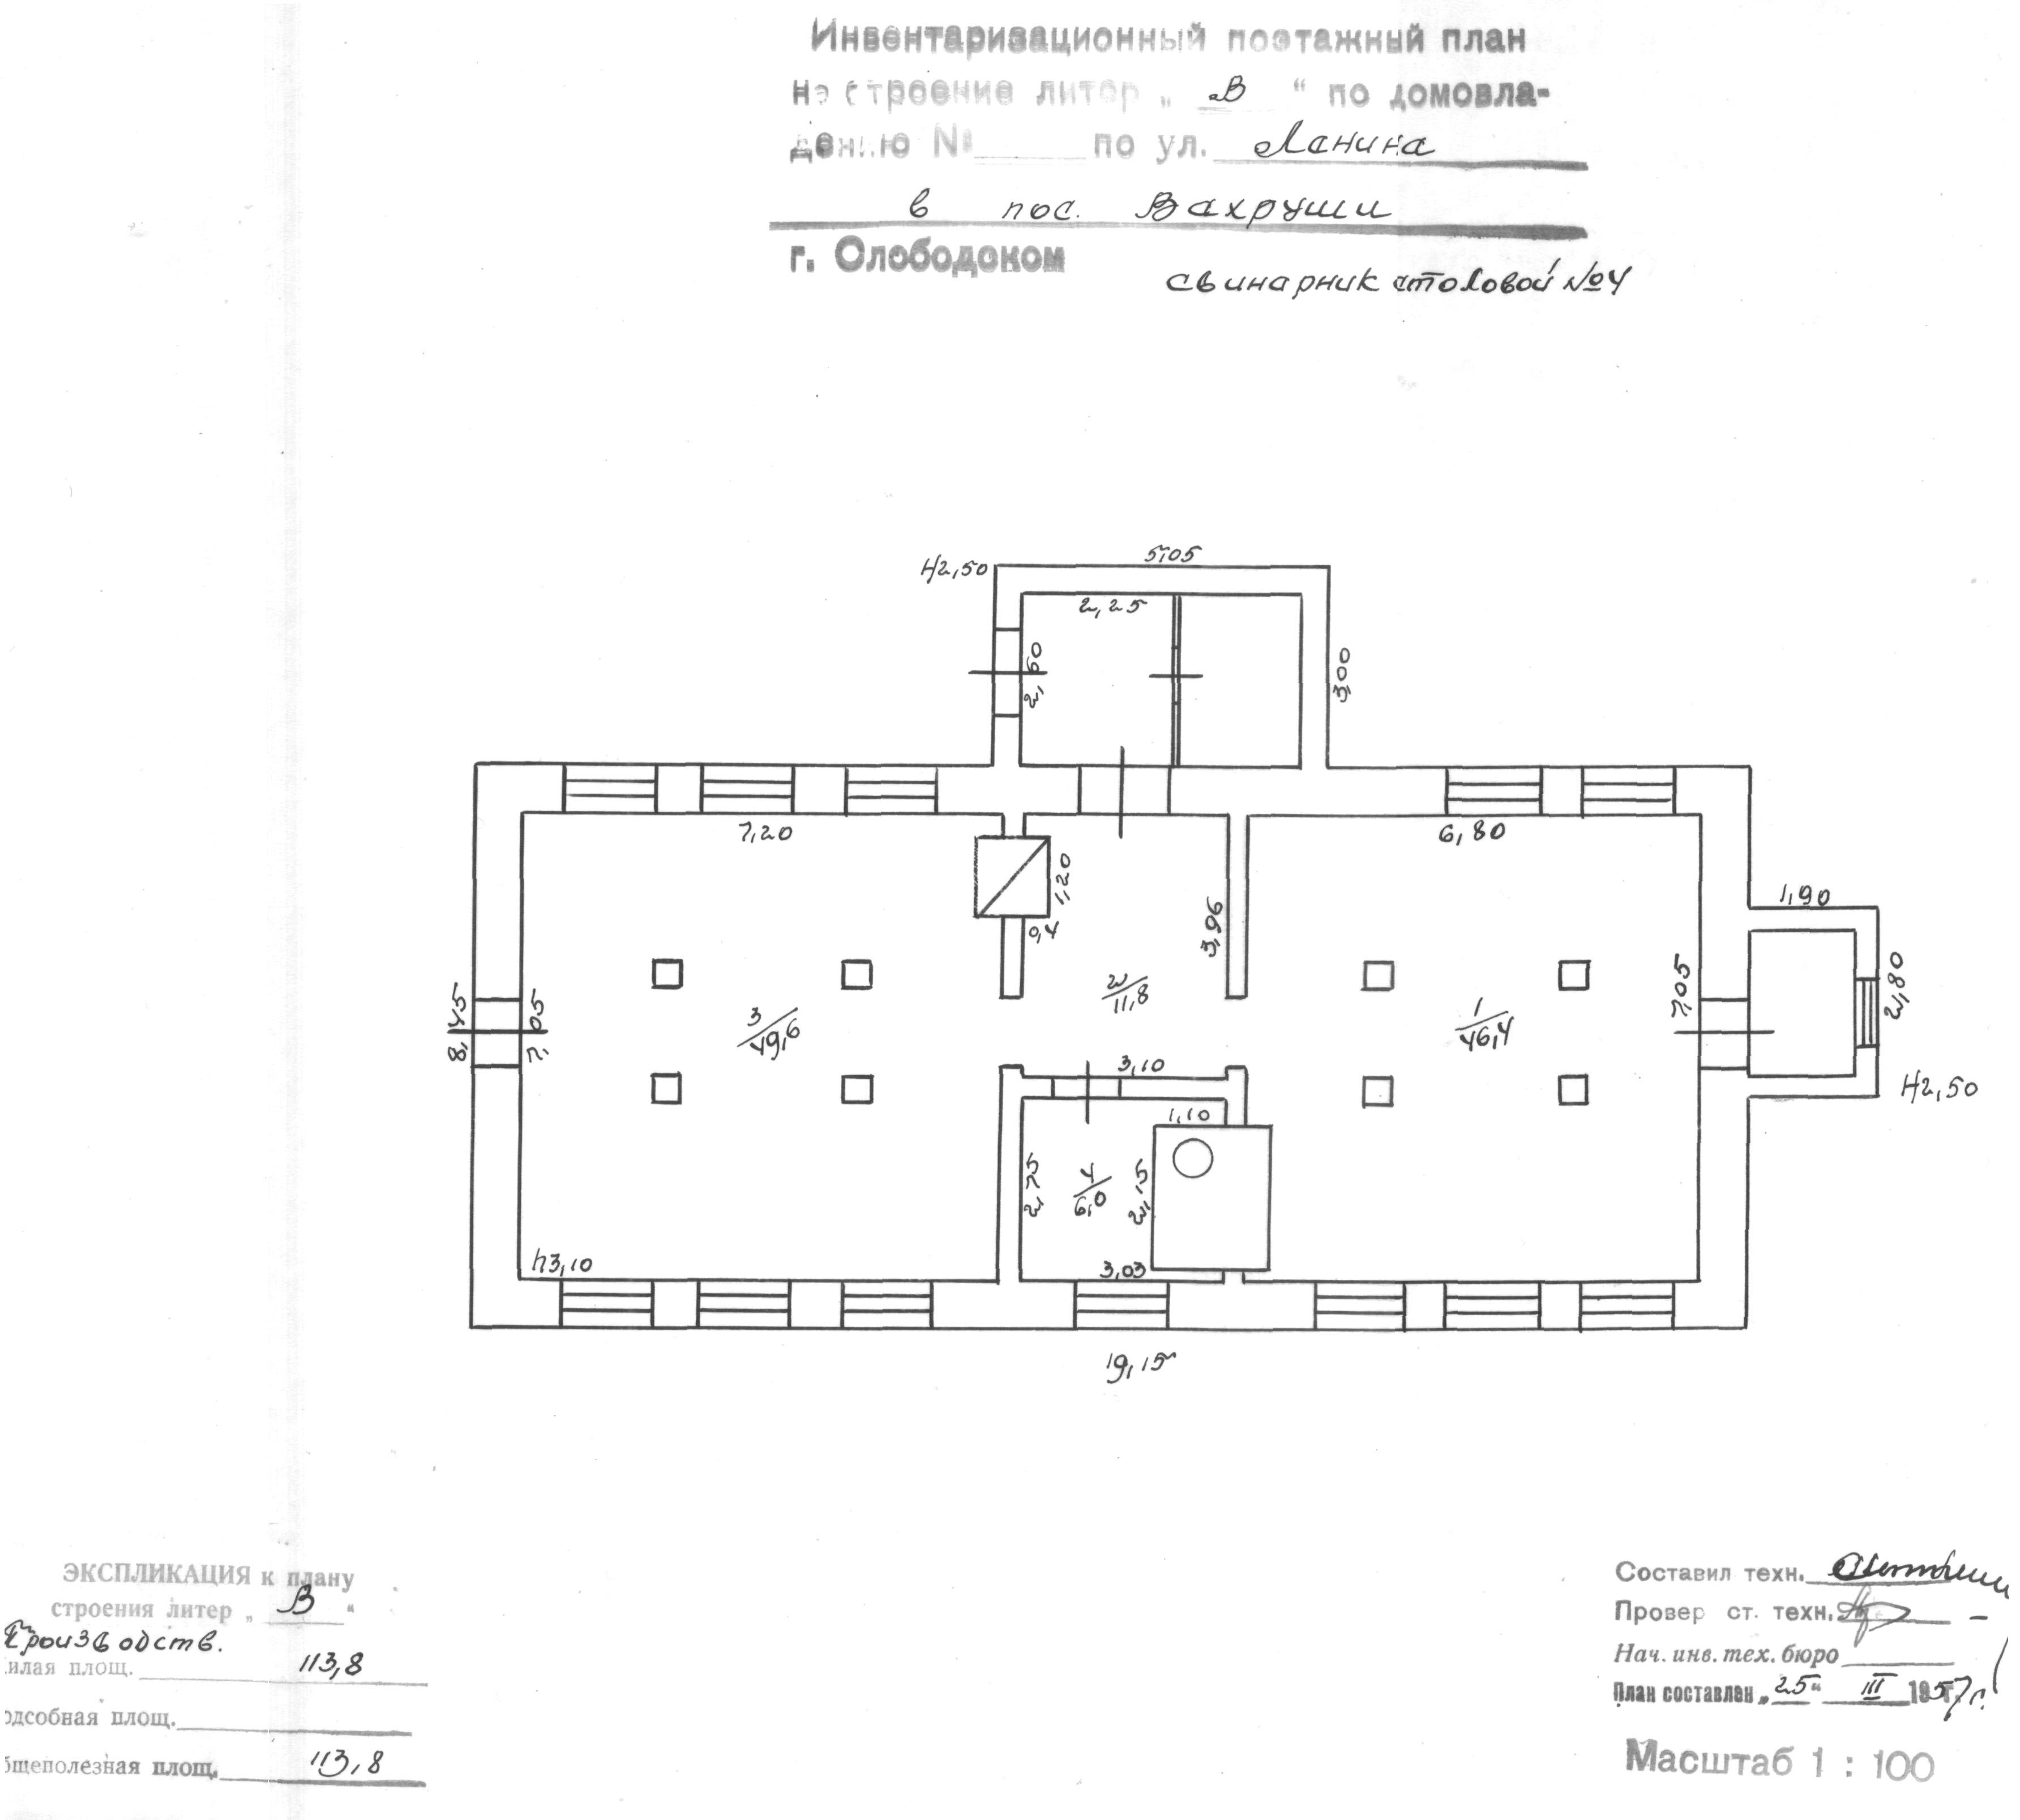 Инвентаризационный поэтажный план
на строение литер „ В “ по домовла-
дению № по ул. Ленина
в пос. Вахруши
г. Слободском
свинарник столовой №4
5,05
H2,50
2,25
2,60
3,00
7,20
6,80
1,20
1,90
0,4
3,96
8,45
7,05
3/49,6
2/11,8
1/46,4
7,05
2,80
H2,50
3,10
1,10
2,75
4/6,0
2,15
h3,10
3,03
19,15
ЭКСПЛИКАЦИЯ к плану
строения литер „ В “
Производств.
илая площ. 113,8
одсобная площ.
бщеполезная площ. 113,8
Составил техн.
Провер ст. техн.
Нач. инв. тех. бюро
План составлен „25“ III 1957г.
Масштаб 1 : 100